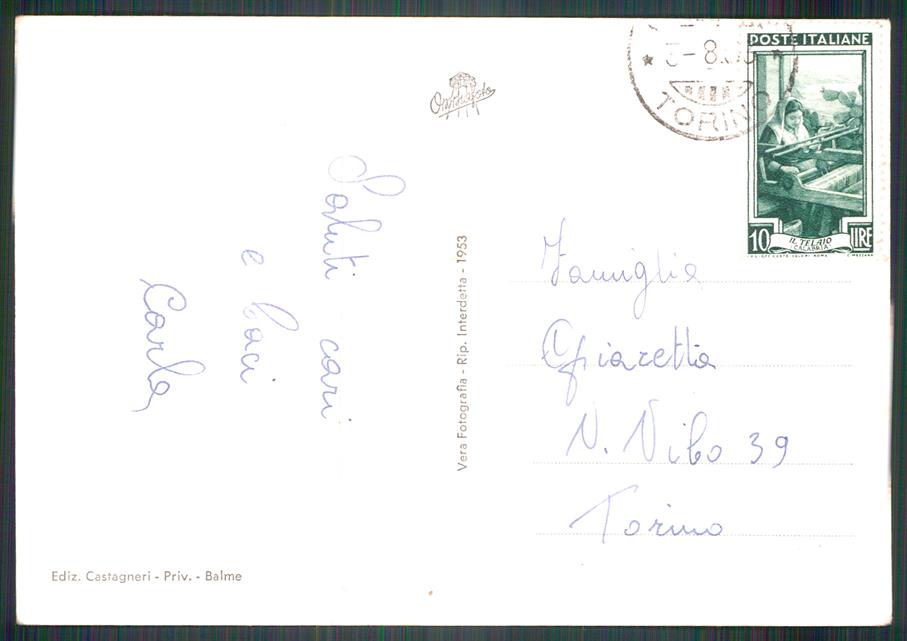 Saluti cari
e baci
Carla
Vera Fotografia - Rip. Interdetta - 1953
Ediz. Castagneri - Priv. - Balme
TORINO
POSTE ITALIANE
10 LIRE
IL TELAIO
(CALABRIA)
Famiglia
Giaretta
V. Vibo 39
Torino